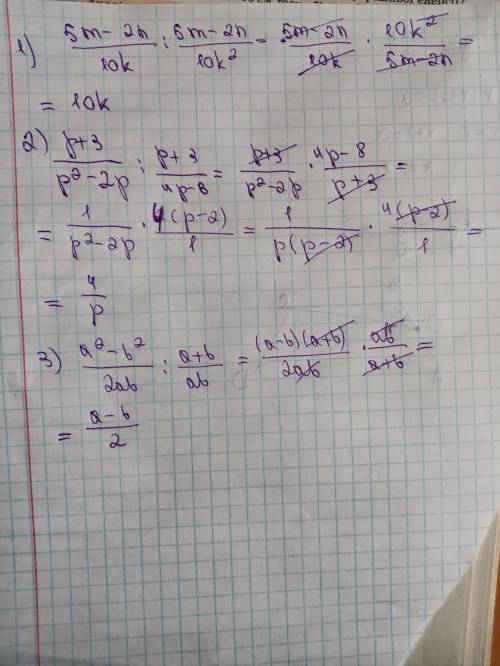 1) (5m-2n)/(10k) : (5m-2n)/(10k²) = (5m-2n)/(10k) · (10k²)/(5m-2n) =
= 10k
2) (p+3)/(p²-2p) : (p+3)/(4p-8) = (p+3)/(p²-2p) · (4p-8)/(p+3) =
= 1/(p²-2p) · (4(p-2))/1 = 1/(p(p-2)) · (4(p-2))/1 =
= 4/p
3) (a²-b²)/(2ab) : (a+b)/(ab) = ((a-b)(a+b))/(2ab) · (ab)/(a+b) =
= (a-b)/2